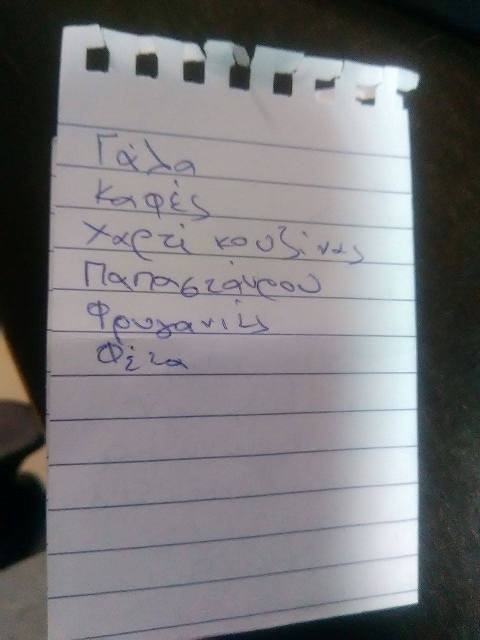 Γάλα
Καφές
Χαρτί κουζίνας
Παπαστάυρου
Φρυγανιές
Φέτα